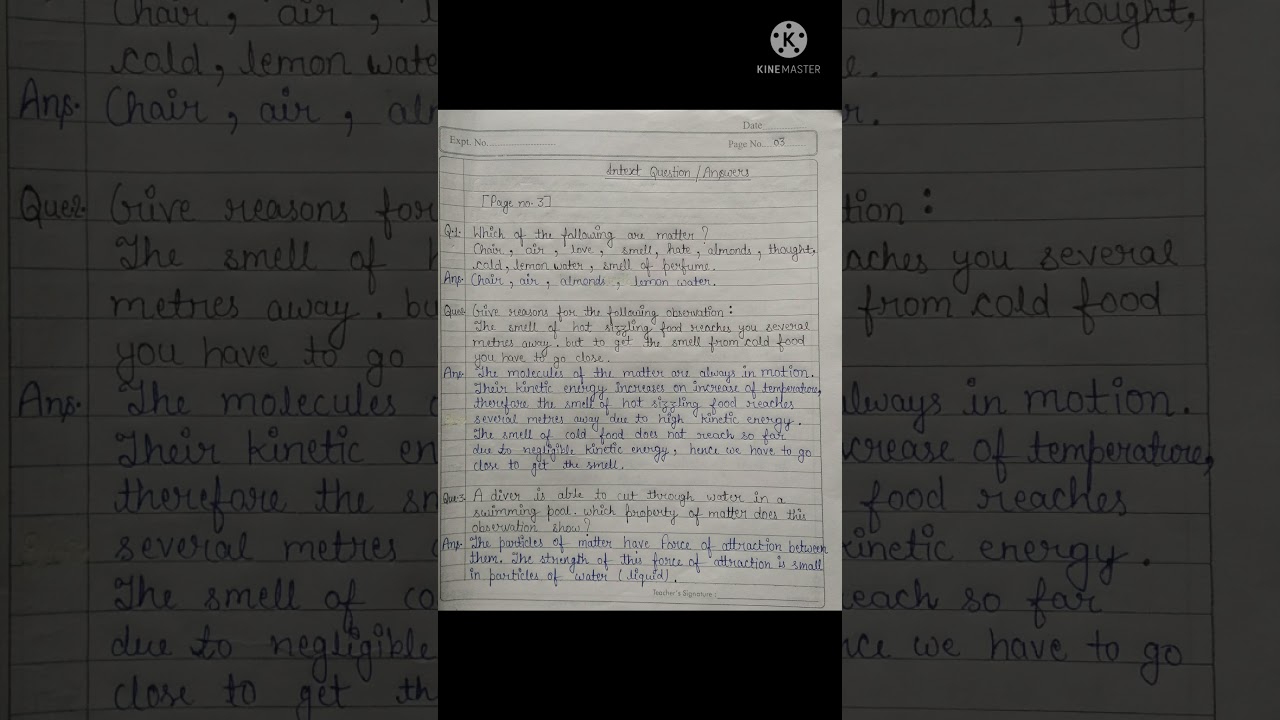 KINEMASTER
Date
Expt. No.
Page No. 03
Intext Question/Answers
[Page no. 3]
Q.1. Which of the following are matter?
Chair, air, love, smell, hate, almonds, thought,
cold, lemon water, smell of perfume.
Ans. Chair, air, almonds, lemon water.
Que2. Give reasons for the following observation:
The smell of hot sizzling food reaches you several
metres away. but to get the smell from cold food
you have to go close.
Ans. The molecules of the matter are always in motion.
Their kinetic energy increases on increase of temperature,
therefore the smell of hot sizzling food reaches
several metres away due to high kinetic energy.
The smell of cold food does not reach so far
due to negligible kinetic energy, hence we have to go
close to get the smell.
Que.3. A diver is able to cut through water in a
swimming pool. which property of matter does this
observation show?
Ans. The particles of matter have force of attraction between
them. The strength of this force of attraction is small
in particles of water (liquid).
Teacher's Signature :